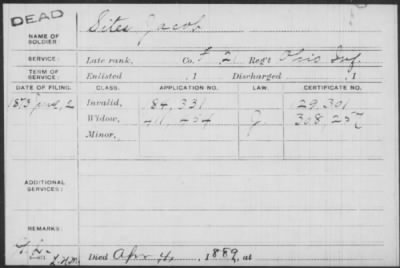 DEAD
NAME OF SOLDIER: Sites Jacob
SERVICE: Late rank, Co. F 2 Reg't Ohio Inf.
TERM OF SERVICE: Enlisted , 1 Discharged , 1
DATE OF FILING. CLASS. APPLICATION NO. LAW. CERTIFICATE NO.
1873 June, 2 Invalid, 84,331 129,301
Widow, 411,454 G. 308,257
Minor,
ADDITIONAL SERVICES:
REMARKS:
Died Apr 4, 1889, at